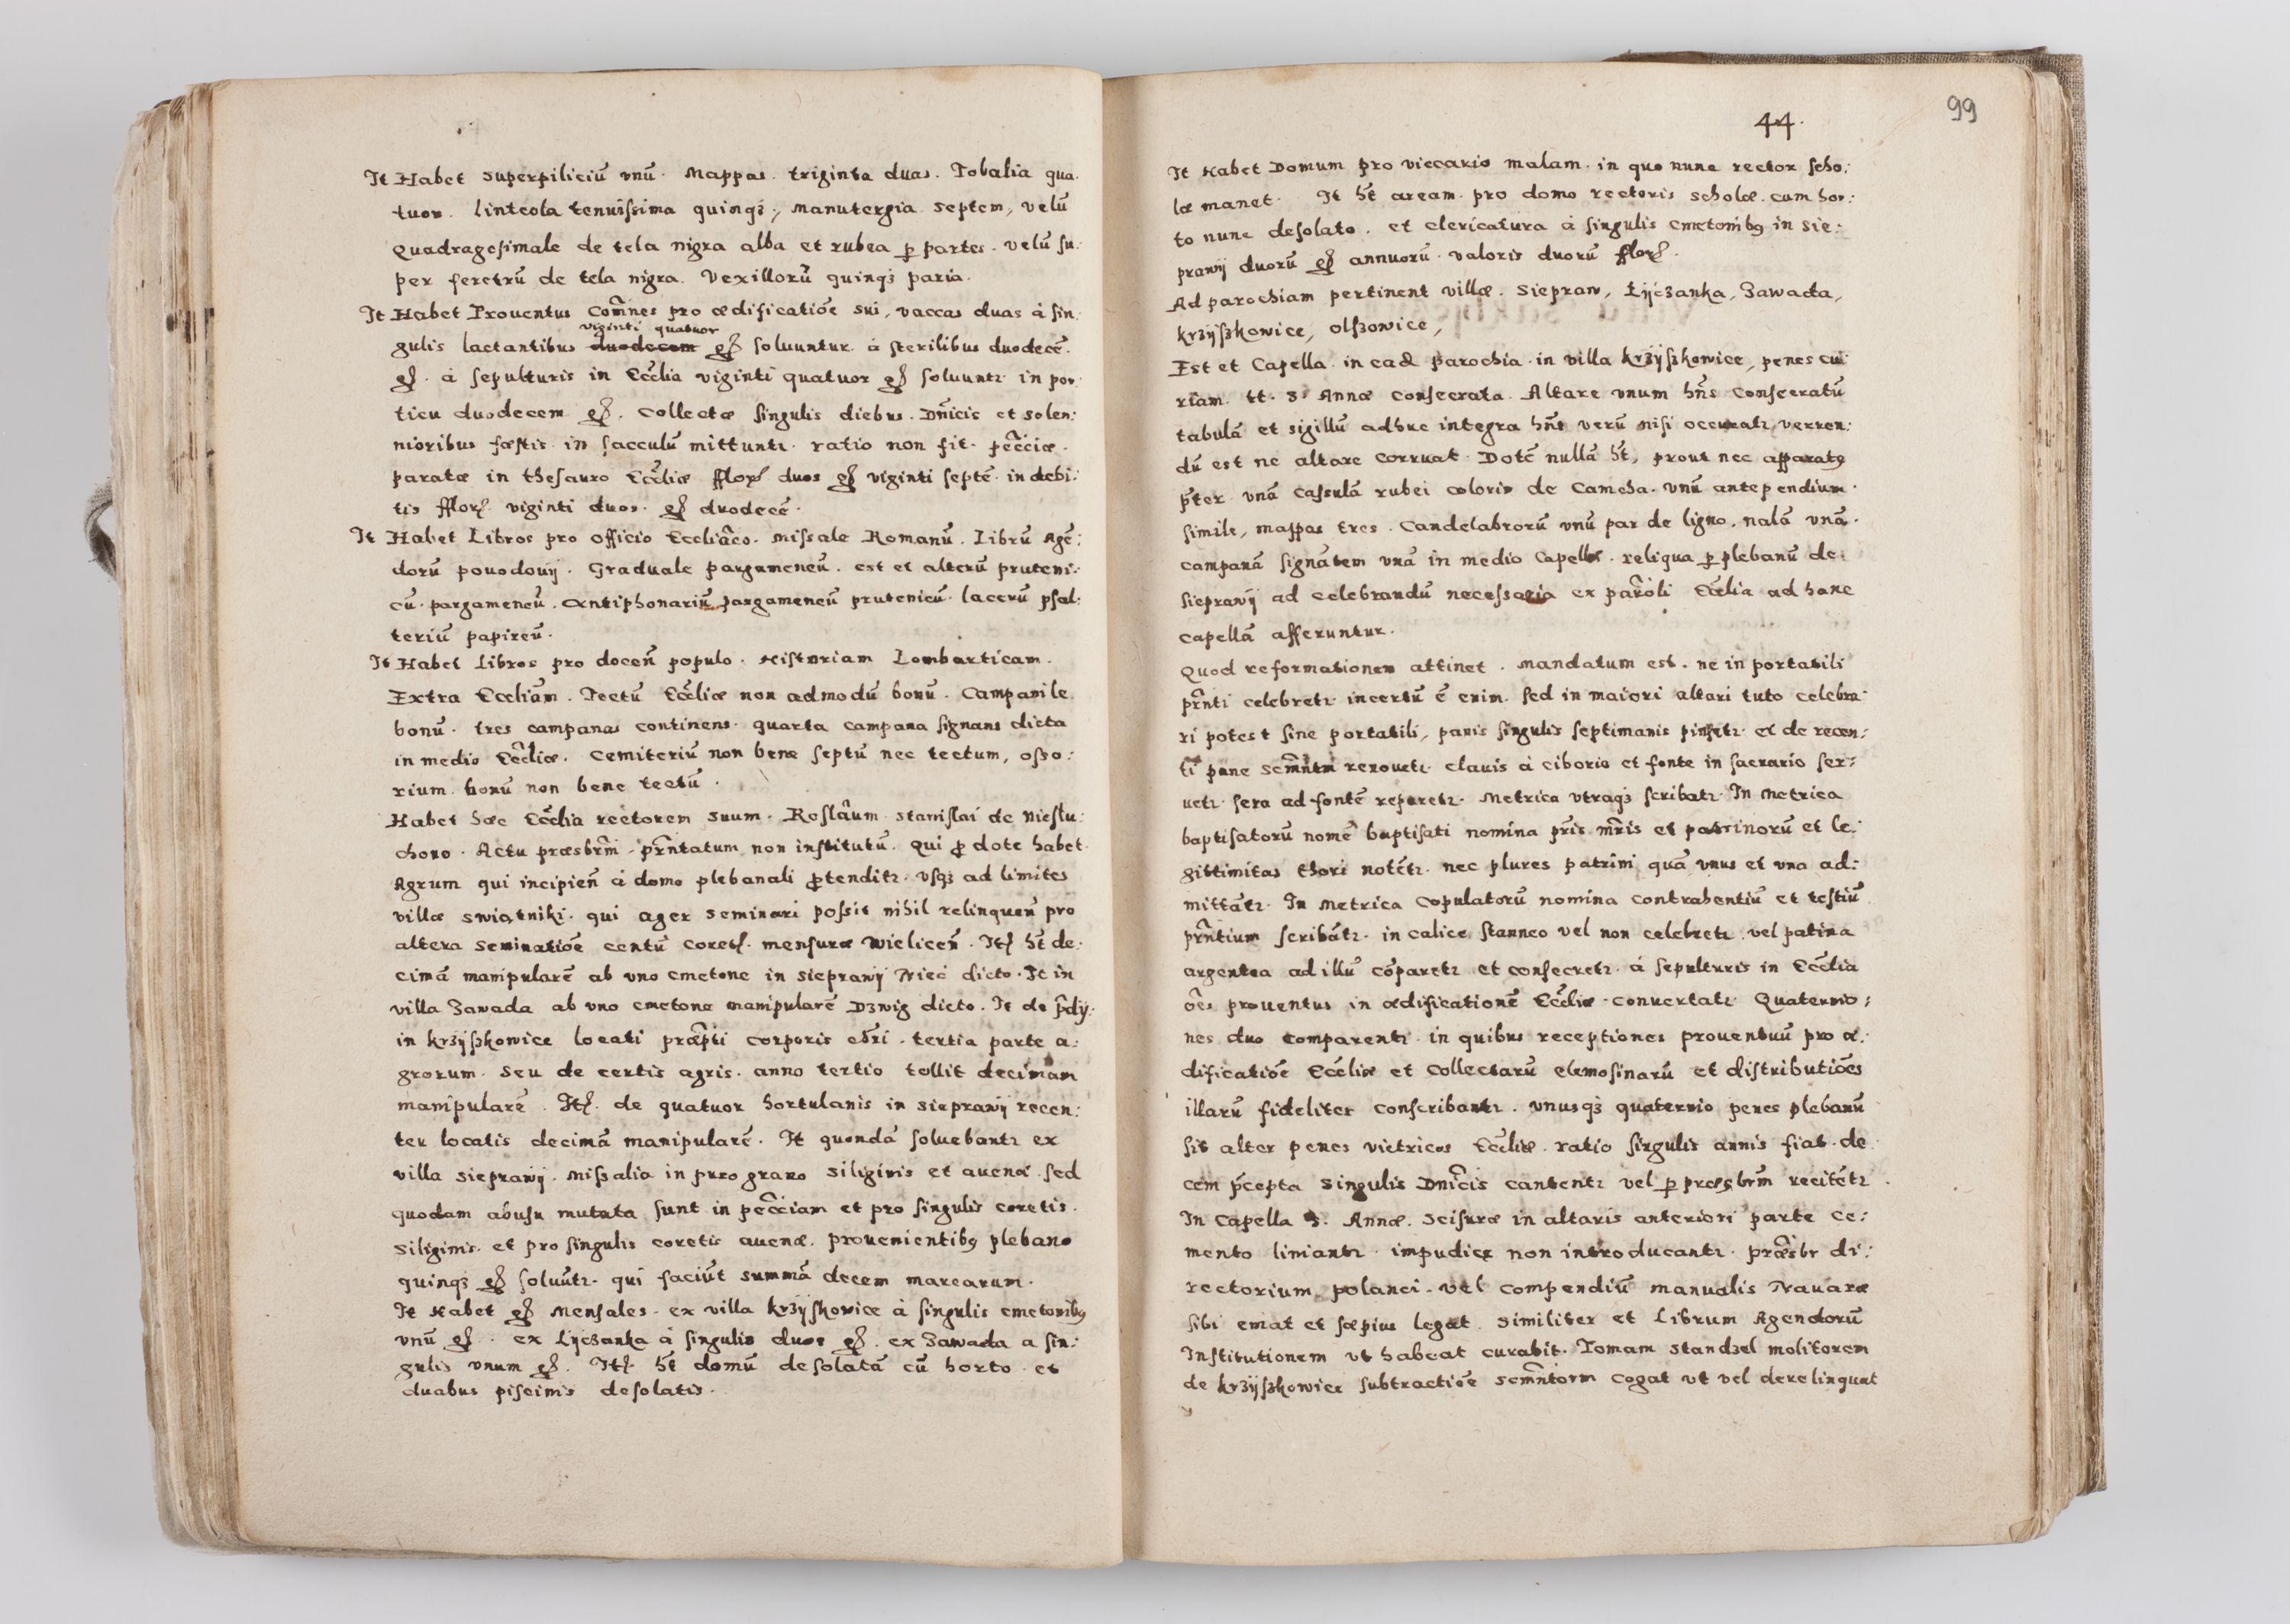 It Habet superpiliciū vnū. Mappas. triginta duas. Tobalia qua.
tuor. linteola tenuissima quinqʒ, manutergia septem, velū
Quadragesimale de tela nigra alba et rubea p partes. velū su:
per feretrū de tela nigra. Vexillorū quinqʒ paria.
It Habet Prouentus Com̃nes pro ædificatiōe sui, vaccas duas à sin
viginti quatuor
gulis lactantibus duodecem gſ soluuntur. à sterilibus duodecē.
gſ. à sepulturis in Eccĺia viginti quatuor gſ soluuntr. in por
ticu duodecem gſ. Collectæ singulis diebus. Dñicis et solen:
nioribus fæstis in sacculū mittuntr. ratio non fit. pecc̃iæ.
paratæ in thesauro Eccĺiæ fflor duos gſ viginti septē. in debi:
tis fflor. viginti duos. gſ duodecē.
It Habet Libros pro officio Eccliâco. Missale Romanū. Librū Agē:
dorū pouodouij. Graduale pargameneū. est et alterū pruteni:
cū. pargameneū. Antiphonariū pargameneū prutenicū. lacerū psal:
teriū papireū.
It Habet libros pro doceñ populo. Historiam Lombarticam.
Extra Eccliām. Tectū Eccĺiæ non admodū bonū. Campanile
bonū. tres campanas continens. quarta campana signans dicta
in medio Eccliæ. Cemiteriū non bene septū nec tectum, osso:
rium. bonū non bene tectū.
Habet hæc Eccĺia rectorem suum. Reslâum stanislai de Niestu:
chono. Actu præsbrm̃i. pr̃ntatum non institutū. qui p dote habet.
Agrum qui incipień à domo plebanali ptenditr. vsqʒ ad limites
villæ swiątniki. qui ager seminari possit nihil relinqueń pro
altera seminatiōe centū coret. mensuræ Wieliceń. It ht de:
cimā manipularē ab vno cmetone in sieprawij Nieć dicto. It in
villa Zawada ab vno cmetone manipularē Dzwig dicto. It de p̃dij:
in krzijszkowice locati præpti corporis eb̃ri. tertia parte a:
grorum. seu de certis agris. anno tertio tollit decimam
manipularē. It. de quatuor hortulanis in sieprawij recen:
ter locatis decimā manipularē. It quondā soluebantr ex
villa sieprawij. missalia in puro grano siliginis et auenæ. sed
quodam abusu mutata sunt in pecc̃iam et pro singulis coretis.
siliginis. et pro singulis coretis auenæ. prouenientibꝰ plebano
quinqʒ gſ soluūtr. qui faciūt summā decem marcarum.
It Habet gſ Mensales. ex villa krzijskowice à singulis cmetonibꝰ
vnū gſ. ex Lijczanka à singulis duos gſ. ex Zawada a sin:
gulis vnum gſ. It. ht domū desolatā cū horto. et
duabus piscinis desolatis.
44.
99
It Habet Domum pro viccario malam. in quo nunc rector scho:
læ manet. It ht aream. pro domo rectoris scholæ. cum hor:
to nunc desolato. et clericatura à singulis cmetonibꝰ in sie:
prawij duorū gſ annuorū. valoris duorū fflor.
Ad parochiam pertinent villæ. Siepraw, Łijczanka, Zawada,
krzijszkowice, olszowice,
Est et Capella. in ead parochia. in villa krzijszkowice, penes cu:
riam. tt. S. Annæ consecrata. Altare vnum hñs Consecratū
tabulā et sigillū adhuc integra hñs verū nisi occuratr, verren:
dū est ne altare corruat. Dotē nullā ht, prout nec apparatꝰ
p̃ter vnā Casulā rubei coloris de Camcha. vnū antependium.
simile, mappas tres. Candelabrorū vnū par de ligno. nalā vnā.
campanā signātem vnā in medio Capellæ. reliqua p plebanū de:
sieprawij ad celebrandū necessaria ex paro̊li Eccĺia ad hanc
Capellā afferuntur.
Quod reformationem attinet. Mandatum est. ne in portatili
pr̃nti celebretr. incertū ē enim. sed in maiori altari tuto celebra
ri potest sine portatili, panis singulis septimanis pinsetr. et de recen:
ti pane sem̃ntm renouetr. clauis à ciborio et fonte in sacrario ser:
uetr. sera ad fontē reparetr. Metrica vtraqʒ scribatr. In Metrica
baptisatorū nomē baptisati nomina pr̃is mr̃is et patrinorū et le:
gittimitas thori notētr. nec plures patrini quā vnus et vna ad:
mittātr. In Metrica Copulatorū nomina contrahentiū et testiū
pr̃ntium scribātr. in calice stanneo vel non celebretr. vel patina
argentea ad illū cōparetr et consecretr. à sepulturis in Eccĺia
oẽs prouentus in ædificationē Eccĺiæ. conuertatr Quaternio:
nes duo comparentr. in quibus receptiones prouentuū pro æ:
dificatiōe Eccĺiæ et Collectarū elemosinarū et distributiōes
illarū fideliter conscribantr. vnusqʒ quaternio penes plebanū
sit alter penes vietricos Eccĺiæ. ratio singulis annis fiat. de
cem p̃cepta singulis Dnicis cantentr vel p præsbrm̃ recitētr.
In Capella S. Annæ. Scisuræ in altaris anteriori parte ce:
mento liniantr. impudicę non introducantr. præsbr di:
rectorium polanci. vel compendiū manualis Nauaræ
sibi emat et sæpius legat. similiter et Librum Agendorū
Institutionem vt habeat curabit. Tomam standzel molitorem
de krzijszkowice subtractiōe sem̃ntorm cogat vt vel derelinquat